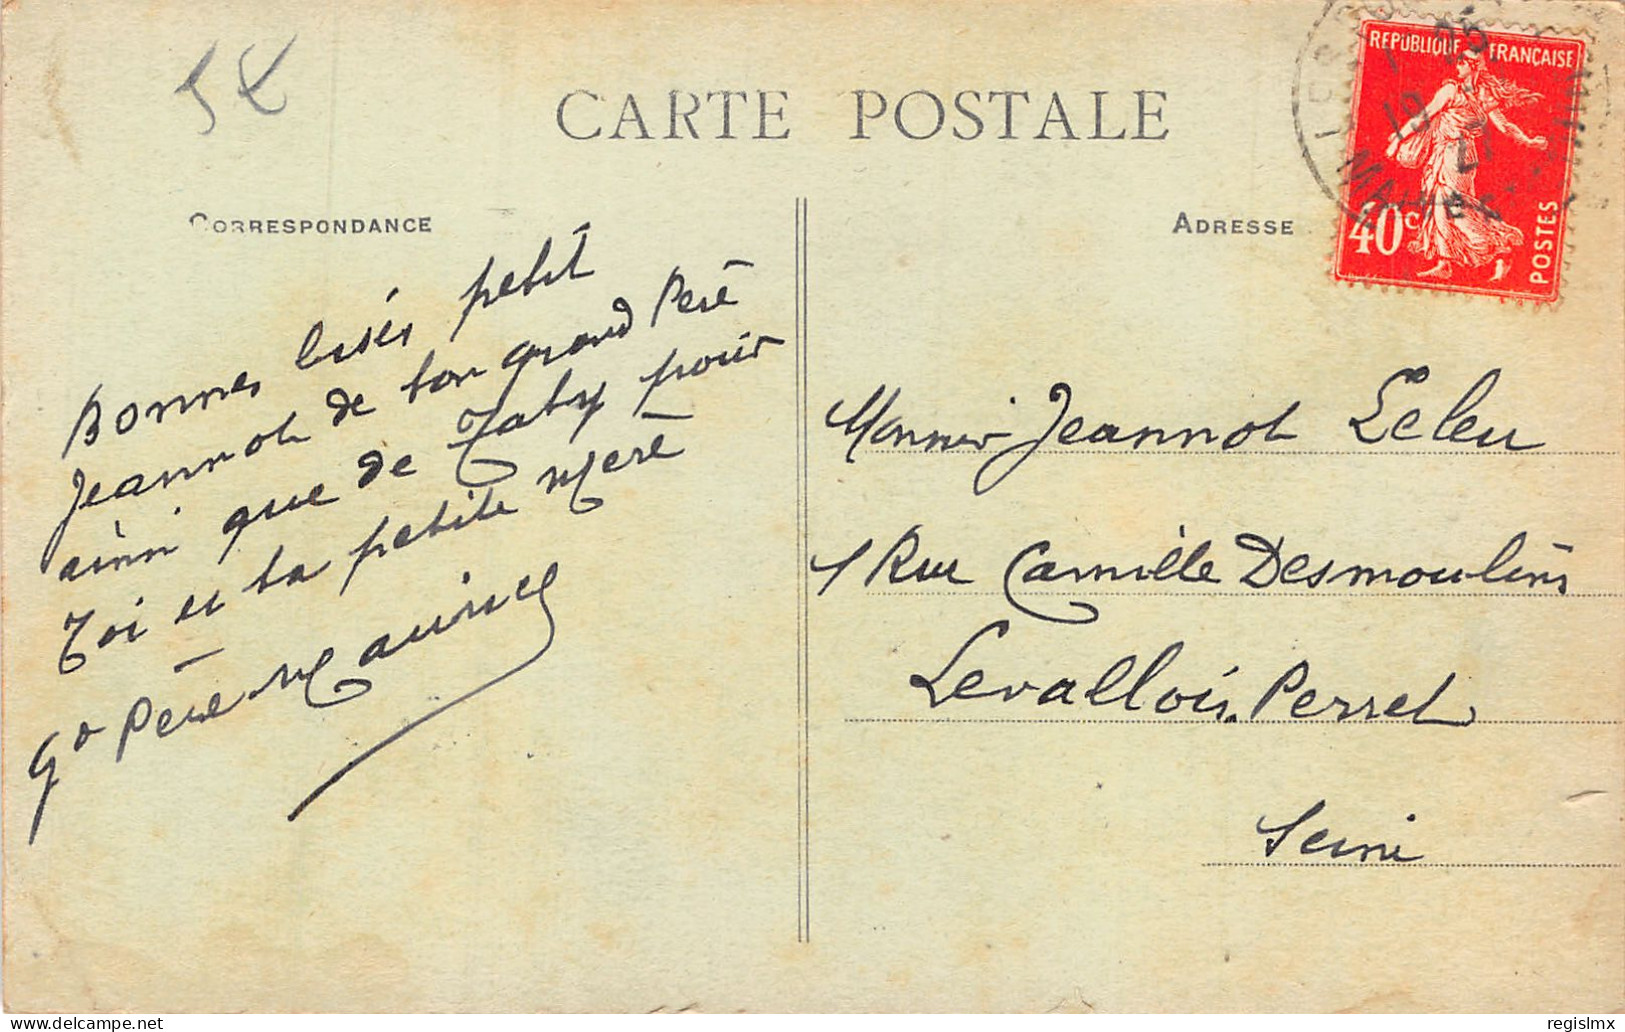 5 €
CARTE POSTALE
CORRESPONDANCE
ADRESSE
REPUBLIQUE FRANÇAISE
40c
POSTES
Bonnes bisés petit
Jeannot de ton grand Peré
ainsi que de Taby pour
Toi et ta petite meré
gd Père Maurice
Monsieur Jeannot Leleu
1 Rue Camille Desmoulins
Levallois. Perret
Seine
delcampe.net
regislmx